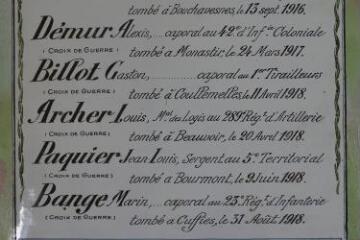 tombé à Bouchavesnes, le 13 sept. 1916.
Démur Alexis, ....caporal au 42e d'Inf.ie Coloniale
(CROIX DE GUERRE) tombé à Monastir, le 24 Mars 1917.
Billot Gaston, ............caporal au 1er Tirailleurs
(CROIX DE GUERRE) tombé à Coullemelles, le 11 Avril 1918.
Archer Louis, M.al des Logis au 289e Rég.t d'Artillerie
(CROIX DE GUERRE) tombé à Beauvoir, le 20 Avril 1918.
Paquier Jean Louis, Sergent au 5e Territorial
(CROIX DE GUERRE) tombé à Bourmont, le 9 Juin 1918.
Bange Marin, ....caporal au 23e Rég.t d'Infanterie
(CROIX DE GUERRE) tombé à Cuffies, le 31 Août 1918.